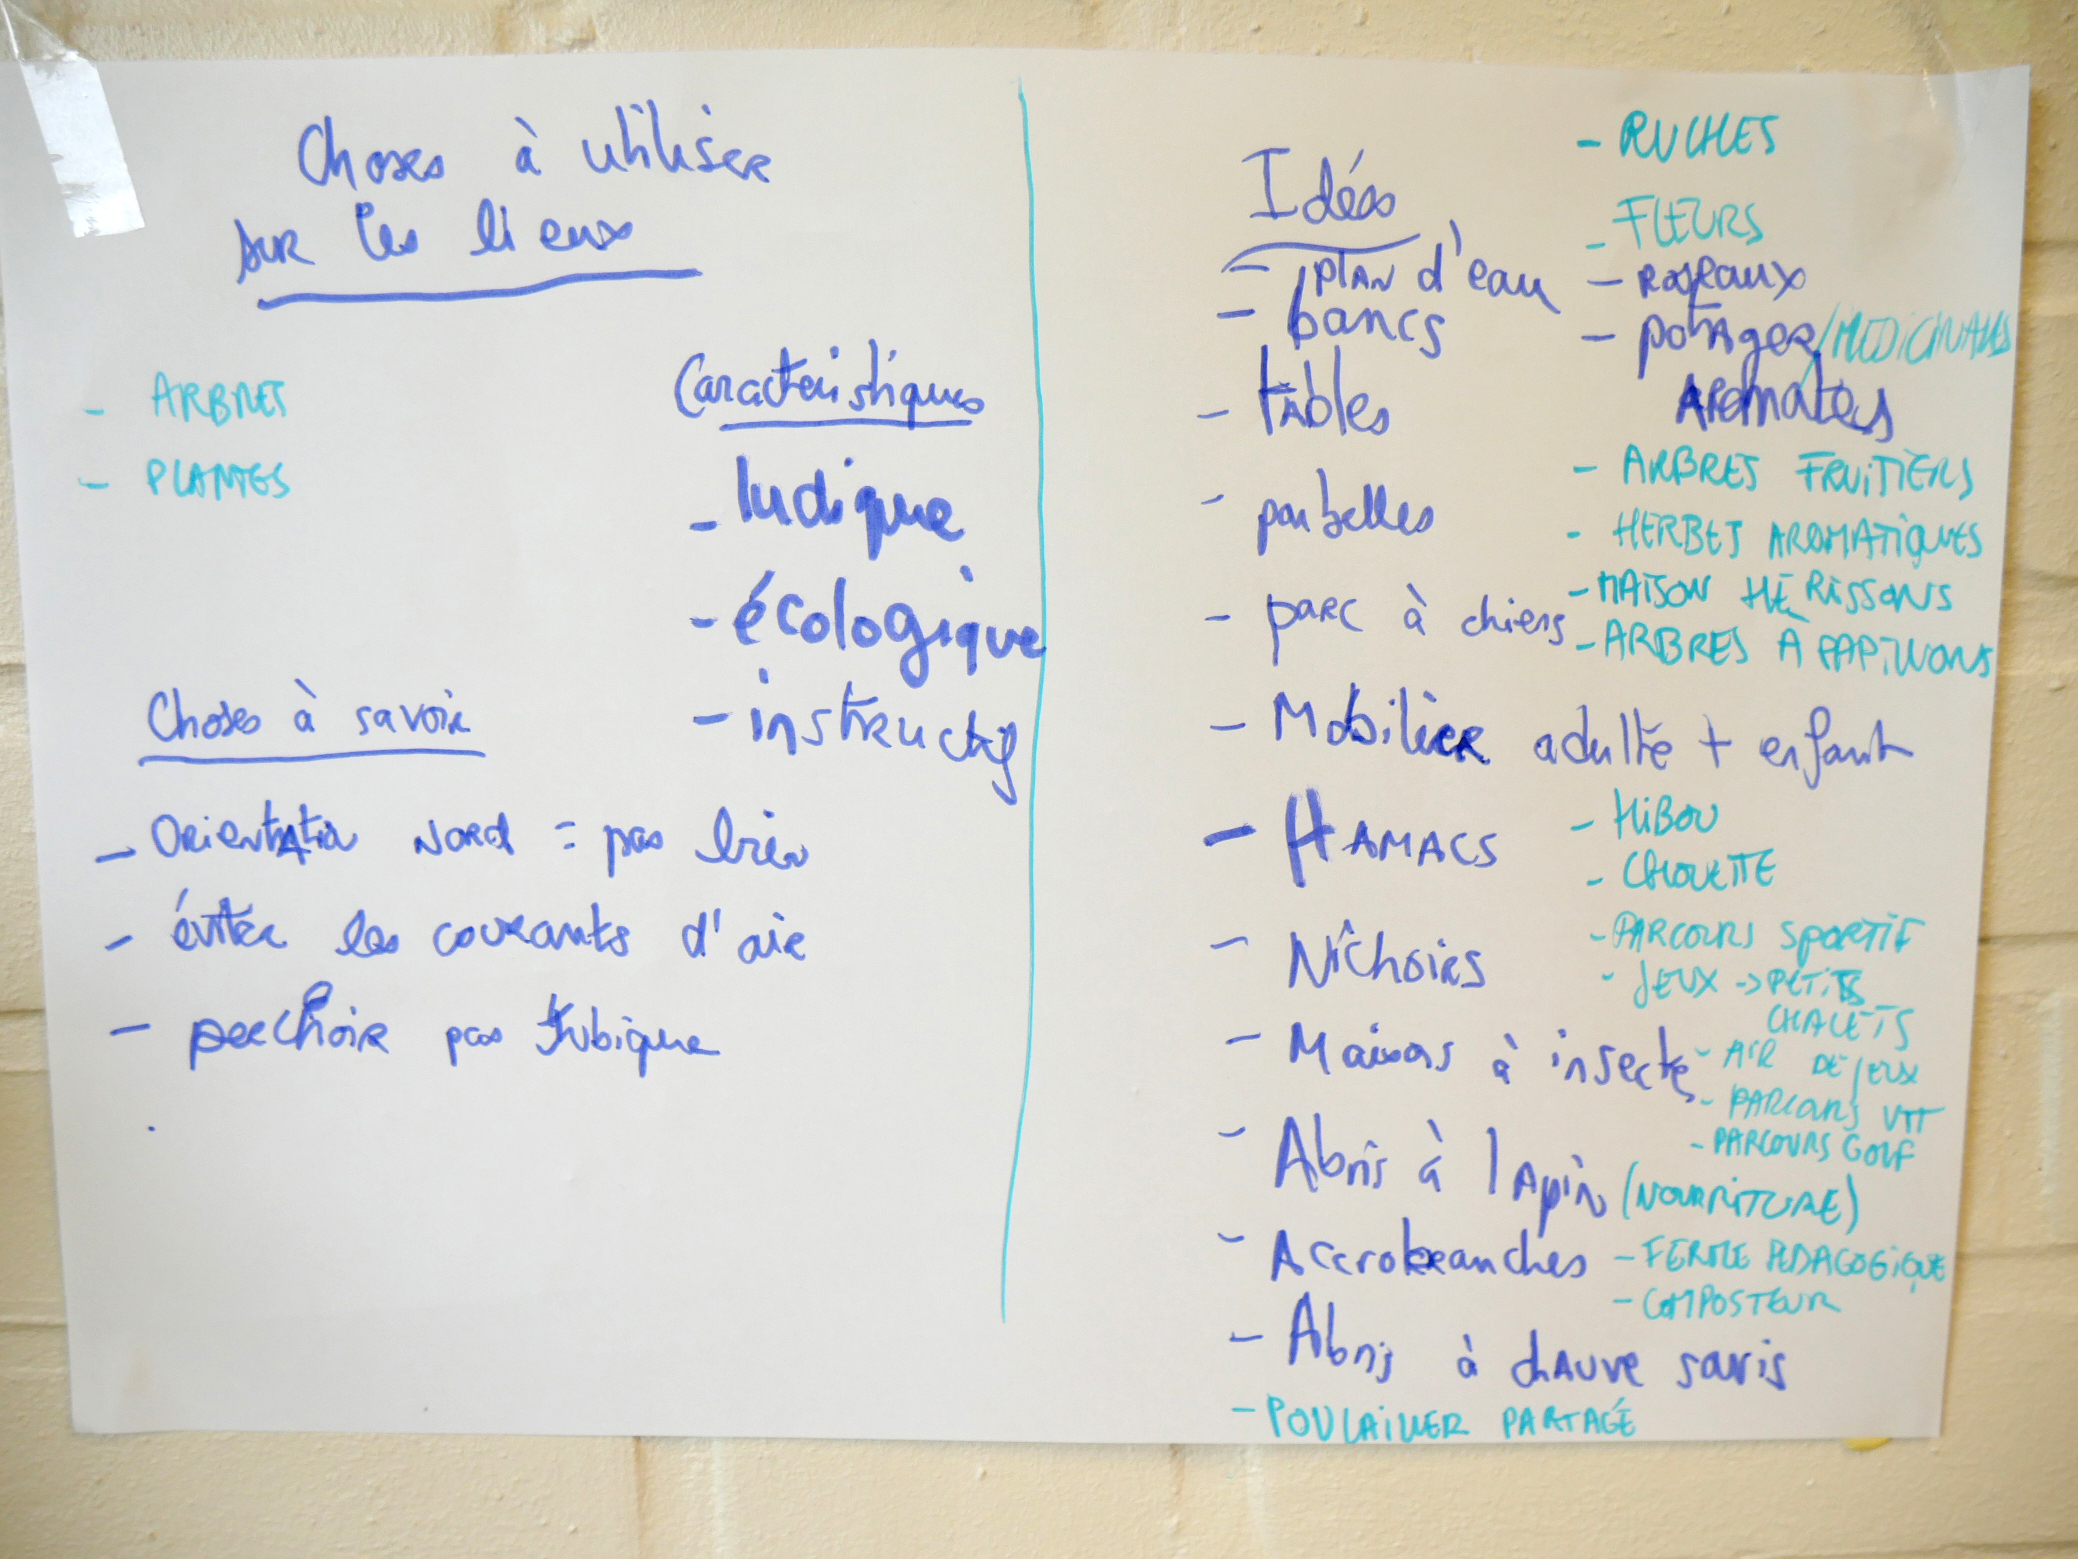 Choses à utiliser
sur les lieux
- ARBRES
- PLANTES
Caractéristiques
- ludique
- écologique
- instructif
Choses à savoir
- Orientation Nord = pas bien
- éviter les courants d'air
- perchoir pas
Idées
- plan d'eau
- bancs
- tables
- poubelles
- parc à chiens
- Mobilier adulte + enfant
- HAMACS
- Nichoirs
- Maisons à insectes
- Abris à lapin (NOURRITURE)
- Accrobranches
- Abris à chauve saris
- POULAILLER PARTAGÉ
- RUCHES
- FLEURS
- Roseaux
- potager/MEDICINALES
Aromates
- ARBRES FRUITIERS
- HERBES AROMATIQUES
- MAISON HÉRISSONS
- ARBRES À PAPILLONS
- HIBOU
- CHOUETTE
- PARCOURS SPORTIF
- JEUX -> PETITS
CHALETS
- AIR DE JEUX
- PARCOURS VTT
- PARCOURS GOLF
- FERME PEDAGOGIQUE
- COMPOSTEUR